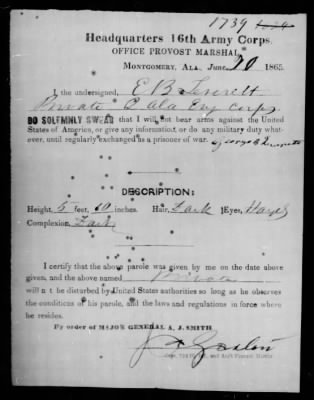 1739
Headquarters 16th Army Corps,
OFFICE PROVOST MARSHAL,
MONTGOMERY, ALA. June 10 1865.
I the undersigned, E B Leverett
Private C Ala Eng Corps
DO SOLEMNLY SWEAR that I will not bear arms against the United
States of America, or give any information, or do any military duty whatever,
until regularly exchanged as a prisoner of war.
DESCRIPTION:
Height, 5 feet, 10 inches. Hair, Dark Eyes, Hazel
Complexion, Dark
I certify that the above parole was given by me on the date above
given, and the above named Private
will n t be disturbed by United States authorities so long as he observes
the conditions of his parole, and the laws and regulations in force where
he resides.
By order of MAJOR GENERAL A. J. SMITH.